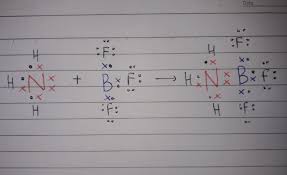 Date
H F H F
H N + B F → H N B F
H F H F